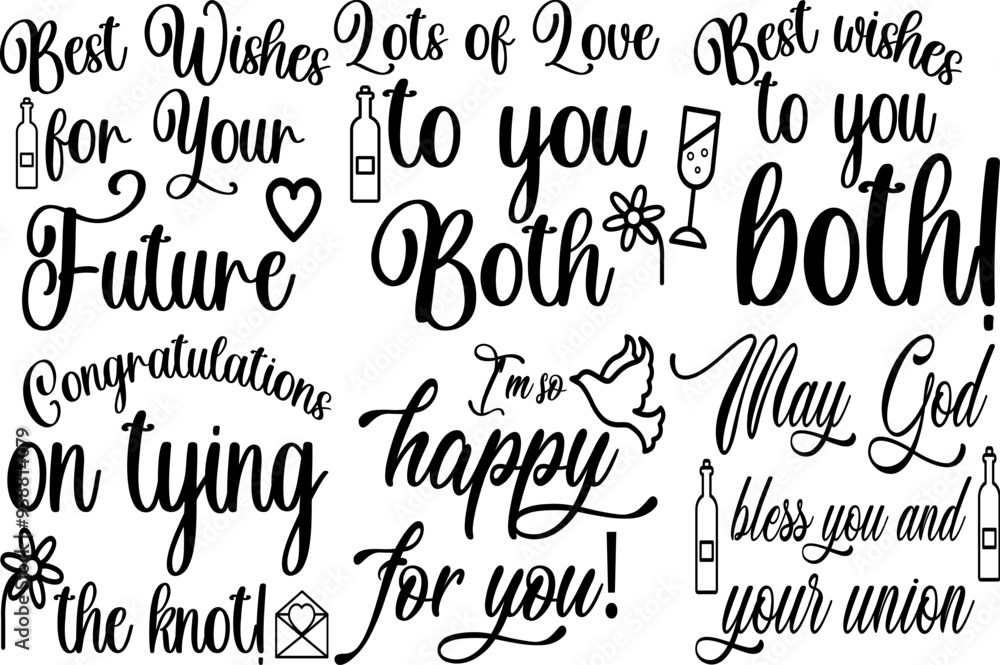 Best Wishes
for Your
Future
Lots of Love
to you
Both
Best wishes
to you
both!
Congratulations
on tying
the knot!
I'm so
happy
for you!
May God
bless you and
your union
Adobe Stock